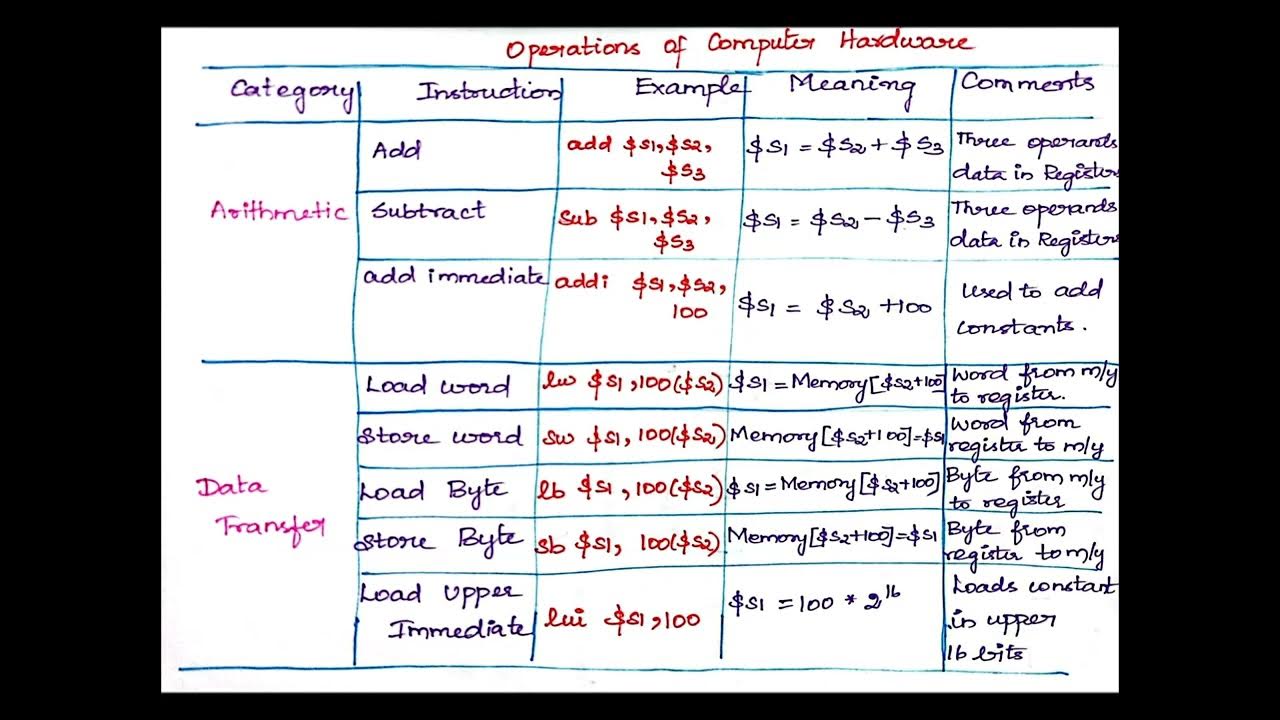 Operations of Computer Hardware
Category Instruction Example Meaning Comments
Arithmetic
Add
add $s1,$s2,
$s3
$s1 = $s2 + $s3
Three operands
data in Registers
Subtract
sub $s1,$s2,
$s3
$s1 = $s2 - $s3
Three operands
data in Registers
add immediate
addi $s1,$s2,
100
$s1 = $s2 +100
Used to add
constants.
Data
Transfer
Load word
lw $s1,100($s2)
$s1 = Memory[$s2+100]
Word from m/y
to register.
Store word
sw $s1, 100($s2)
Memory[$s2+100]=$s1
Word from
register to m/y
Load Byte
lb $s1,100($s2)
$s1 = Memory[$s2+100]
Byte from m/y
to register
Store Byte
sb $s1, 100($s2)
Memory[$s2+100]=$s1
Byte from
register to m/y
Load upper
Immediate
lui $s1,100
$s1 = 100 * 2^16
Loads constant
in upper
16 bits